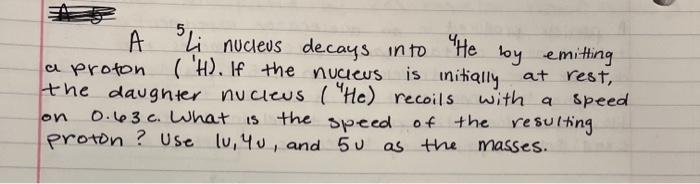 A ⁵Li nucleus decays into ⁴He by emitting
a proton (¹H). If the nucleus is initially at rest,
the daughter nucleus (⁴He) recoils with a speed
on 0.63c. What is the speed of the resulting
proton? Use 1u, 4u, and 5u as the masses.